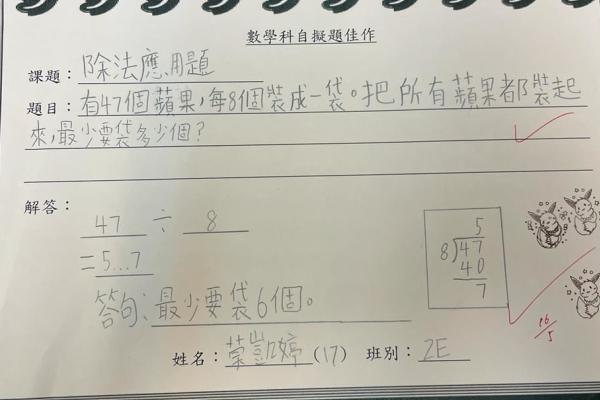 數學科自擬題佳作
課題：除法應用題
題目：有47個蘋果，每8個裝成一袋。把所有蘋果都裝起
來，最少要袋多少個？
解答：
47 ÷ 8
=5...7
答句：最少要袋6個。
5
8)47
40
7
16/5
姓名：葉凱婷(17) 班別：2E